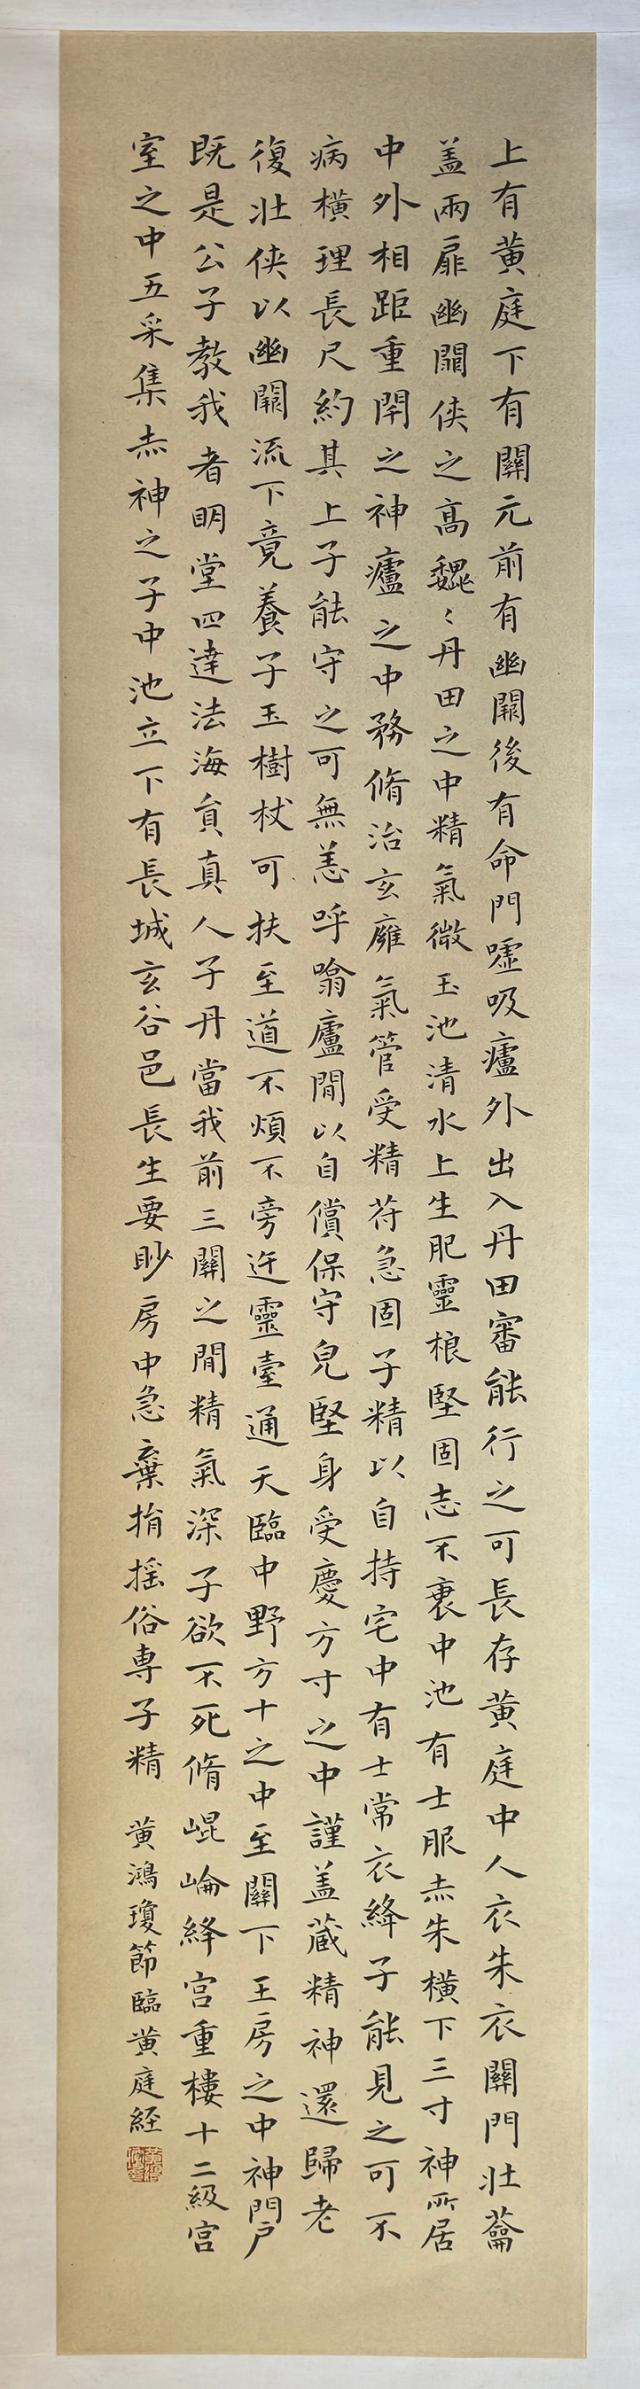 上有黄庭下有關元前有幽闕後有命門噓吸廬外出入丹田審能行之可長存黄庭中人衣朱衣關門壯蘥
盖兩扉幽闕侠之高魏〻丹田之中精氣微玉池清水上生肥靈根堅固志不衰中池有士服赤朱橫下三寸神所居
中外相距重閇之神廬之中務脩治玄癰氣管受精苻急固子精以自持宅中有士常衣絳子能見之可不
病橫理長尺約其上子能守之可無恙呼噏廬閒以自償保守皃堅身受慶方寸之中謹盖藏精神還歸老
復壯侠以幽闕流下竟養子玉樹杖可扶至道不煩不旁迕靈臺通天臨中野方寸之中至關下玉房之中神門户
既是公子教我者明堂四達法海負真人子丹當我前三關之閒精氣深子欲不死脩崐崘絳宫重樓十二級宫
室之中五采集赤神之子中池立下有長城玄谷邑長生要眇房中急棄捐摇俗専子精 黄鴻瓊節臨黄庭経